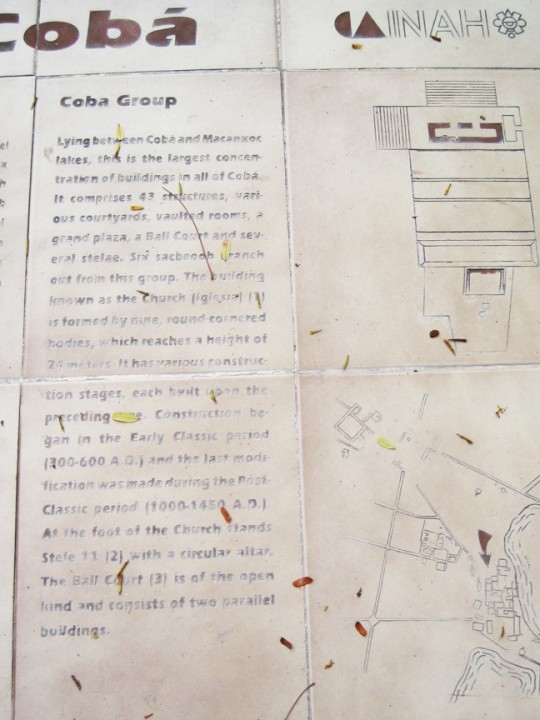 Cobá
CA INAH
Coba Group
Lying between Cobá and Macanxoc
lakes, this is the largest concen-
tration of buildings in all of Coba.
It comprises 43 structures, vari-
ous courtyards, vaulted rooms, a
grand plaza, a Ball Court and sev-
eral stelae. Six sacbeoob branch
out from this group. The building
known as the Church (Iglesia) (1)
is formed by nine, round-cornered
bodies, which reaches a height of
24 meters. It has various construc-
tion stages, each built upon the
preceding one. Construction be-
gan in the Early Classic period
(300-600 A.D.) and the last modi-
fication was made during the Post-
Classic period (1000-1450 A.D.)
At the foot of the Church stands
Stele 11 (2) with a circular altar.
The Ball Court (3) is of the open
kind and consists of two parallel
buildings.